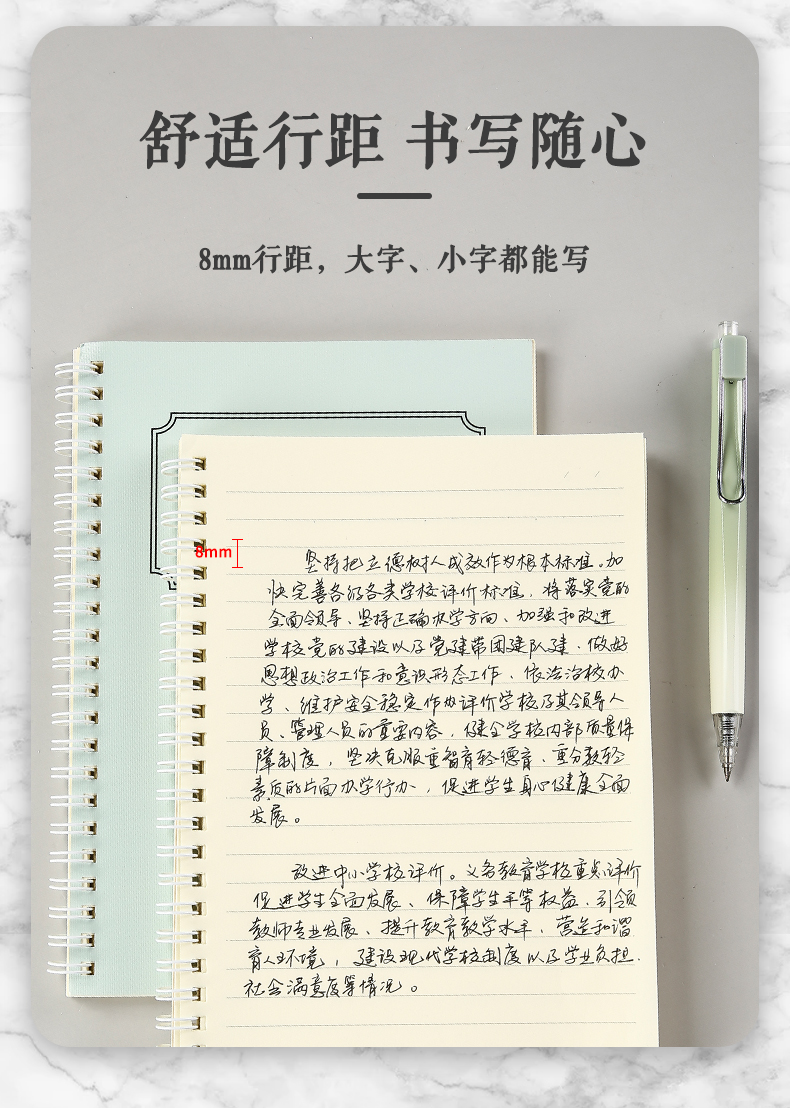 舒适行距 书写随心
8mm行距，大字、小字都能写
8mm
坚持把立德树人成效作为根本标准。加
快完善各级各类学校评价标准，将落实党的
全面领导、坚持正确办学方向、加强和改进
学校党的建设以及党建带团建队建、做好
思想政治工作和意识形态工作、依法治校办
学、维护安全稳定作为评价学校及其领导人
员、管理人员的重要内容，健全学校内部质量保
障制度，坚决克服重智育轻德育、重分数轻
素质的片面办学行为，促进学生身心健康全面
发展。
改进中小学校评价。义务教育学校重点评价
促进学生全面发展、保障学生平等权益、引领
教师专业发展、提升教育教学水平、营造和谐
育人环境，建设现代学校制度以及学业负担、
社会满意度等情况。